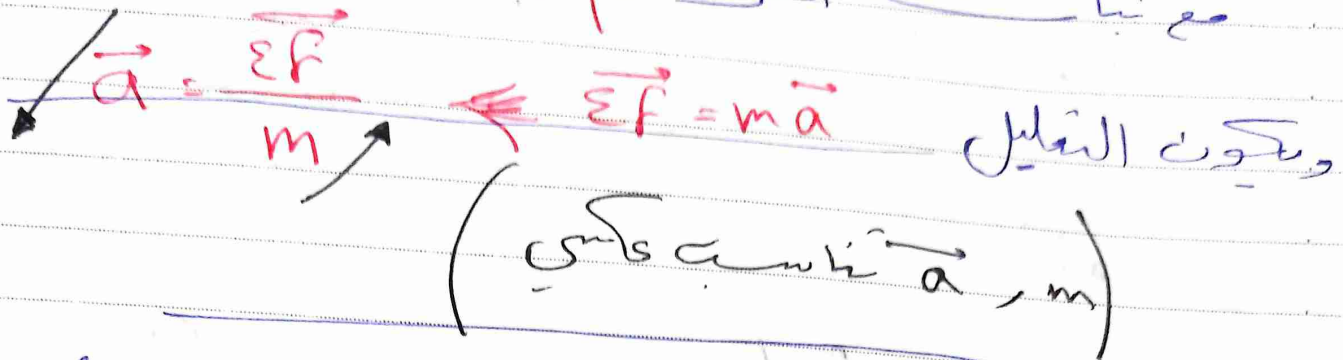 مع
ويكون التعليل Σf⃗ = m a⃗ ⇐ a⃗ = Σf⃗ / m
(m , a⃗ تناسب عكسي)